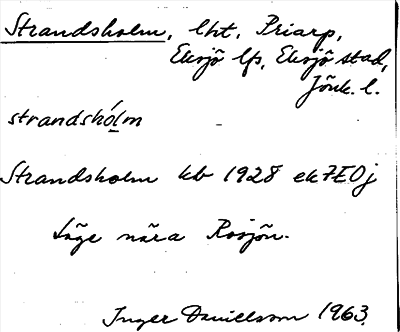 Strandsholm, lht, Priarp,
Eksjö lfs, Eksjö stad,
Jönk. l.
strandshólm
Strandsholm kb 1928 ek 7E0j
Läge nära Rosjön.
Inger Danielsson 1963.